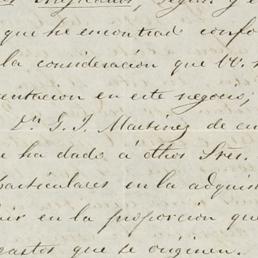 que he encontrado confo
la consideración que V. r
entación en este negocio;
Dn. J. J. Martinez de cu
e ha dado á dhos Sres.
Particulares en la adquis
ir en la proporcion que
gastos que se originen.